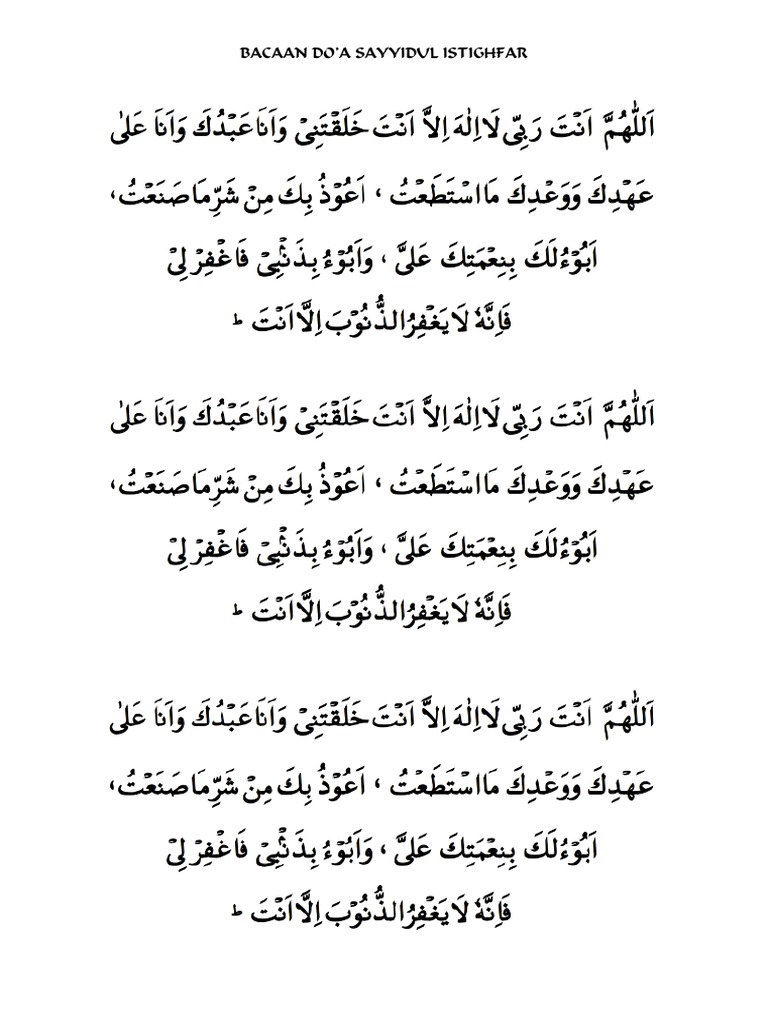 BACAAN DO'A SAYYIDUL ISTIGHFAR
اَللّٰهُمَّ اَنْتَ رَبِّى لَااِلٰهَ اِلاَّ اَنْتَ خَلَقْتَنِىْ وَاَنَاعَبْدُكَ وَاَنَا عَلٰى
عَهْدِكَ وَوَعْدِكَ مَااسْتَطَعْتُ ، اَعُوْذُ بِكَ مِنْ شَرِّمَاصَنَعْتُ،
اَبُوْءُلَكَ بِنِعْمَتِكَ عَلَىَّ ، وَاَبُوْءُ بِذَنْۢبِىْ فَاغْفِرْلِىْ
فَاِنَّهٗ لَايَغْفِرُالذُّنُوْبَ اِلَّااَنْتَ ؕ
اَللّٰهُمَّ اَنْتَ رَبِّى لَااِلٰهَ اِلاَّ اَنْتَ خَلَقْتَنِىْ وَاَنَاعَبْدُكَ وَاَنَا عَلٰى
عَهْدِكَ وَوَعْدِكَ مَااسْتَطَعْتُ ، اَعُوْذُ بِكَ مِنْ شَرِّمَاصَنَعْتُ،
اَبُوْءُلَكَ بِنِعْمَتِكَ عَلَىَّ ، وَاَبُوْءُ بِذَنْۢبِىْ فَاغْفِرْلِىْ
فَاِنَّهٗ لَايَغْفِرُالذُّنُوْبَ اِلَّااَنْتَ ؕ
اَللّٰهُمَّ اَنْتَ رَبِّى لَااِلٰهَ اِلاَّ اَنْتَ خَلَقْتَنِىْ وَاَنَاعَبْدُكَ وَاَنَا عَلٰى
عَهْدِكَ وَوَعْدِكَ مَااسْتَطَعْتُ ، اَعُوْذُ بِكَ مِنْ شَرِّمَاصَنَعْتُ،
اَبُوْءُلَكَ بِنِعْمَتِكَ عَلَىَّ ، وَاَبُوْءُ بِذَنْۢبِىْ فَاغْفِرْلِىْ
فَاِنَّهٗ لَايَغْفِرُالذُّنُوْبَ اِلَّااَنْتَ ؕ